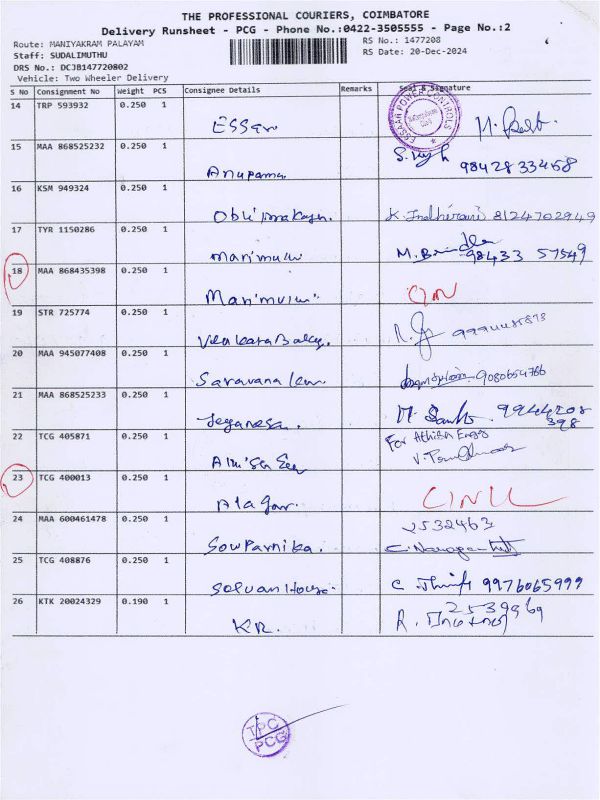 THE PROFESSIONAL COURIERS, COIMBATORE
Delivery Runsheet - PCG - Phone No.:0422-3505555 - Page No.:2
Route: MANIYAKRAM PALAYAM
RS No.: 1477208
Staff: SUDALIMUTHU
RS Date: 20-Dec-2024
DRS No.: DCJB147720802
Vehicle: Two Wheeler Delivery
S No Consignment No Weight PCS Consignee Details Remarks Seal & Signature
14 TRP 593932 0.250 1
Essar
ESSAR POWER CONTROLS
15 MAA 868525232 0.250 1
Anupama
98428 33458
16 KSM 949324 0.250 1
K. Indhirani 8124702949
17 TYR 1150286 0.250 1
Marimuthu
98433 57549
18 MAA 868435398 0.250 1
Marimuthu
19 STR 725774 0.250 1
20 MAA 945077408 0.250 1
Saravana
9080654766
21 MAA 868525233 0.250 1
9944208
398
22 TCG 405871 0.250 1
For Athisa Engg
23 TCG 400013 0.250 1
Alagar
24 MAA 600461478 0.250 1
2532463
Sowparnika.
25 TCG 408876 0.250 1
Selvan House
9976065999
26 KTK 20024329 0.190 1
KR.
TPC
PCG